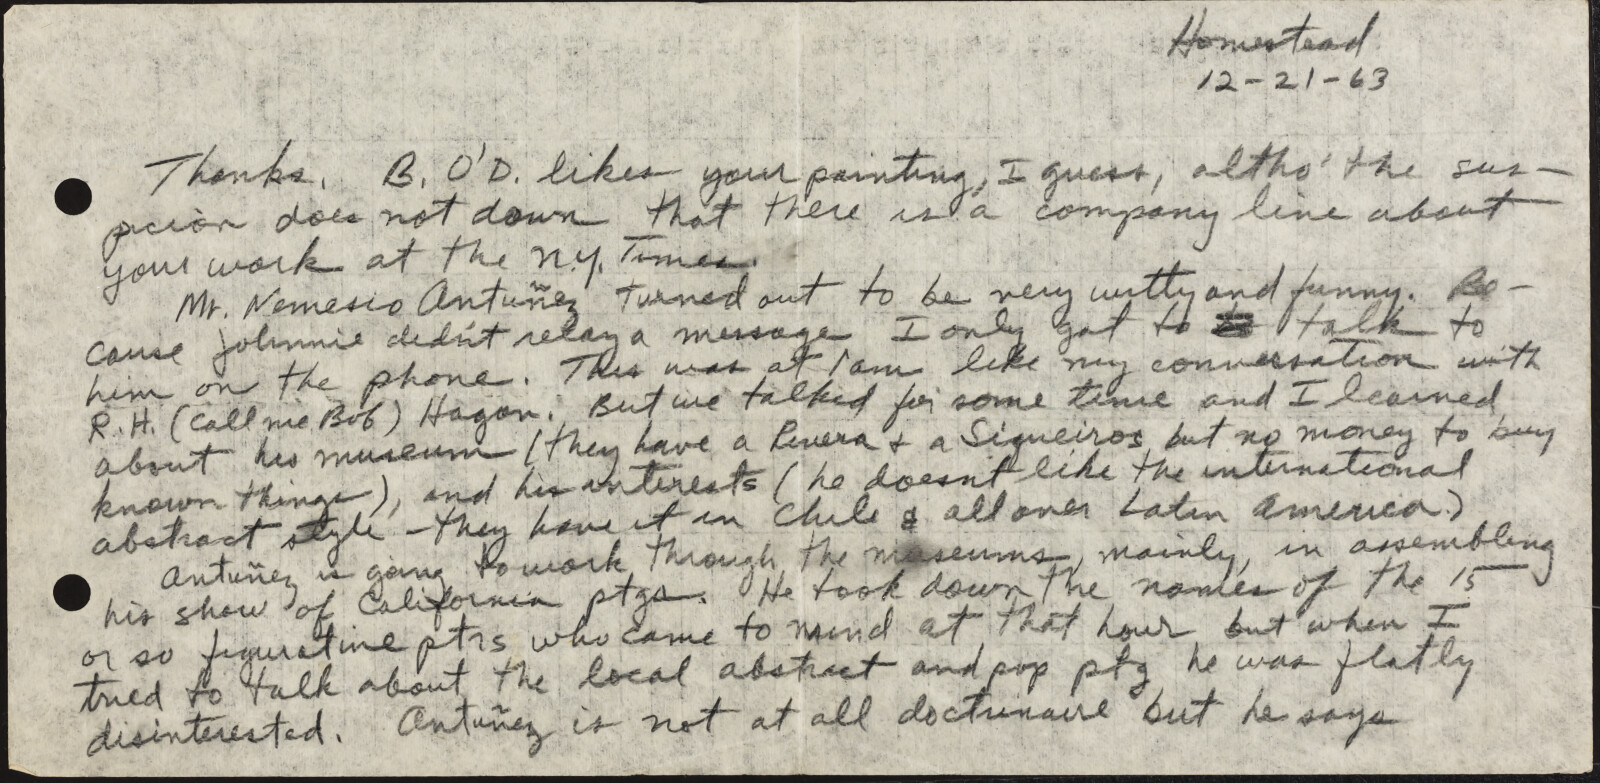 Homestead
12-21-63
Thanks. B. O'D. likes your painting, I guess, altho' the sus-
picion does not down that there is a company line about
your work at the N.Y. Times.
Mr. Nemesio Antuñez turned out to be very witty and funny. Be-
cause Johnnie didn't relay a message I only got to talk to
him on the phone. This was at 1 am like my conversation with
R.H. (Call me Bob) Hagan. But we talked for some time and I learned
about his museum (they have a Rivera & a Siqueiros but no money to buy
known things), and his interests (he doesn't like the international
abstract style - they have it in Chile & all over Latin America.)
Antuñez is going to work through the museums, mainly, in assembling
his show of California ptgs. He took down the names of the 15
or so figurative ptrs who came to mind at that hour but when I
tried to talk about the local abstract and pop ptg he was flatly
disinterested. Antuñez is not at all doctrinaire but he says